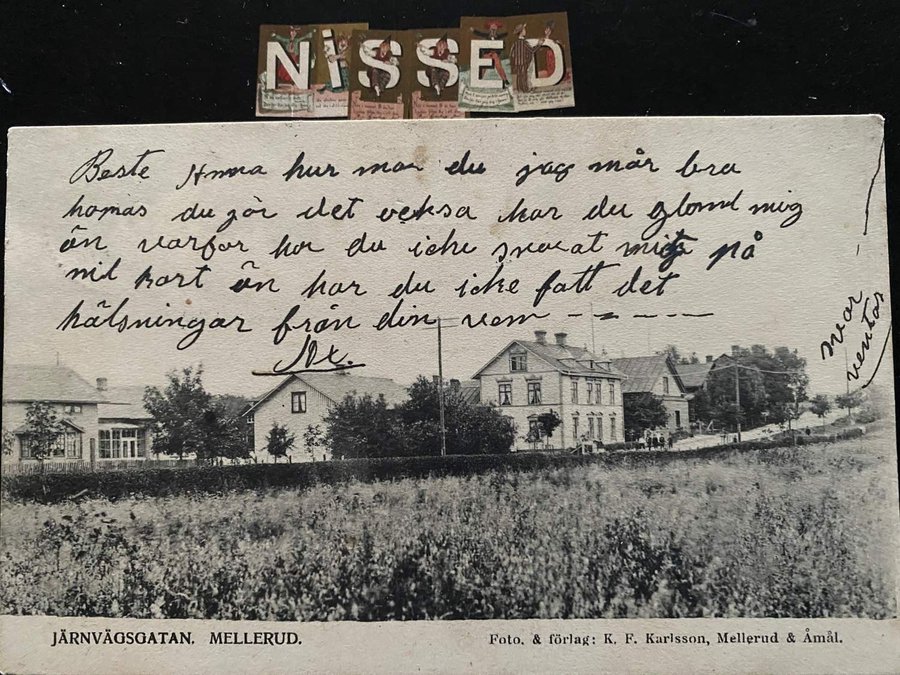 NiSSED
Beste Anna hur mår du jag mår bra
homas du gör det ocksa har du glömd mig
än varför har du icke svarat mig på
mit kort än har du icke fått det
hälsningar från din vem - - - - - -
Nx.
svar
ventas
JÄRNVÄGSGATAN. MELLERUD.
Foto. & förlag: K. F. Karlsson, Mellerud & Åmål.